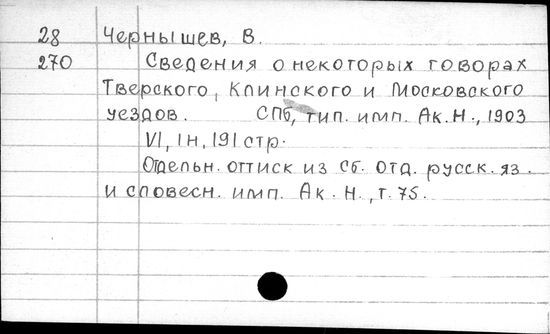 28 Чернышев, В.
270 Сведения о некоторых говорах
Тверского, Клинского и Московского
уездов. СПб, тип. имп. Ак. Н., 1903
VI, 1н, 191 стр.
Отдельн. оттиск из Сб. отд. русск. яз.
и словесн. имп. Ак. Н., т. 75.